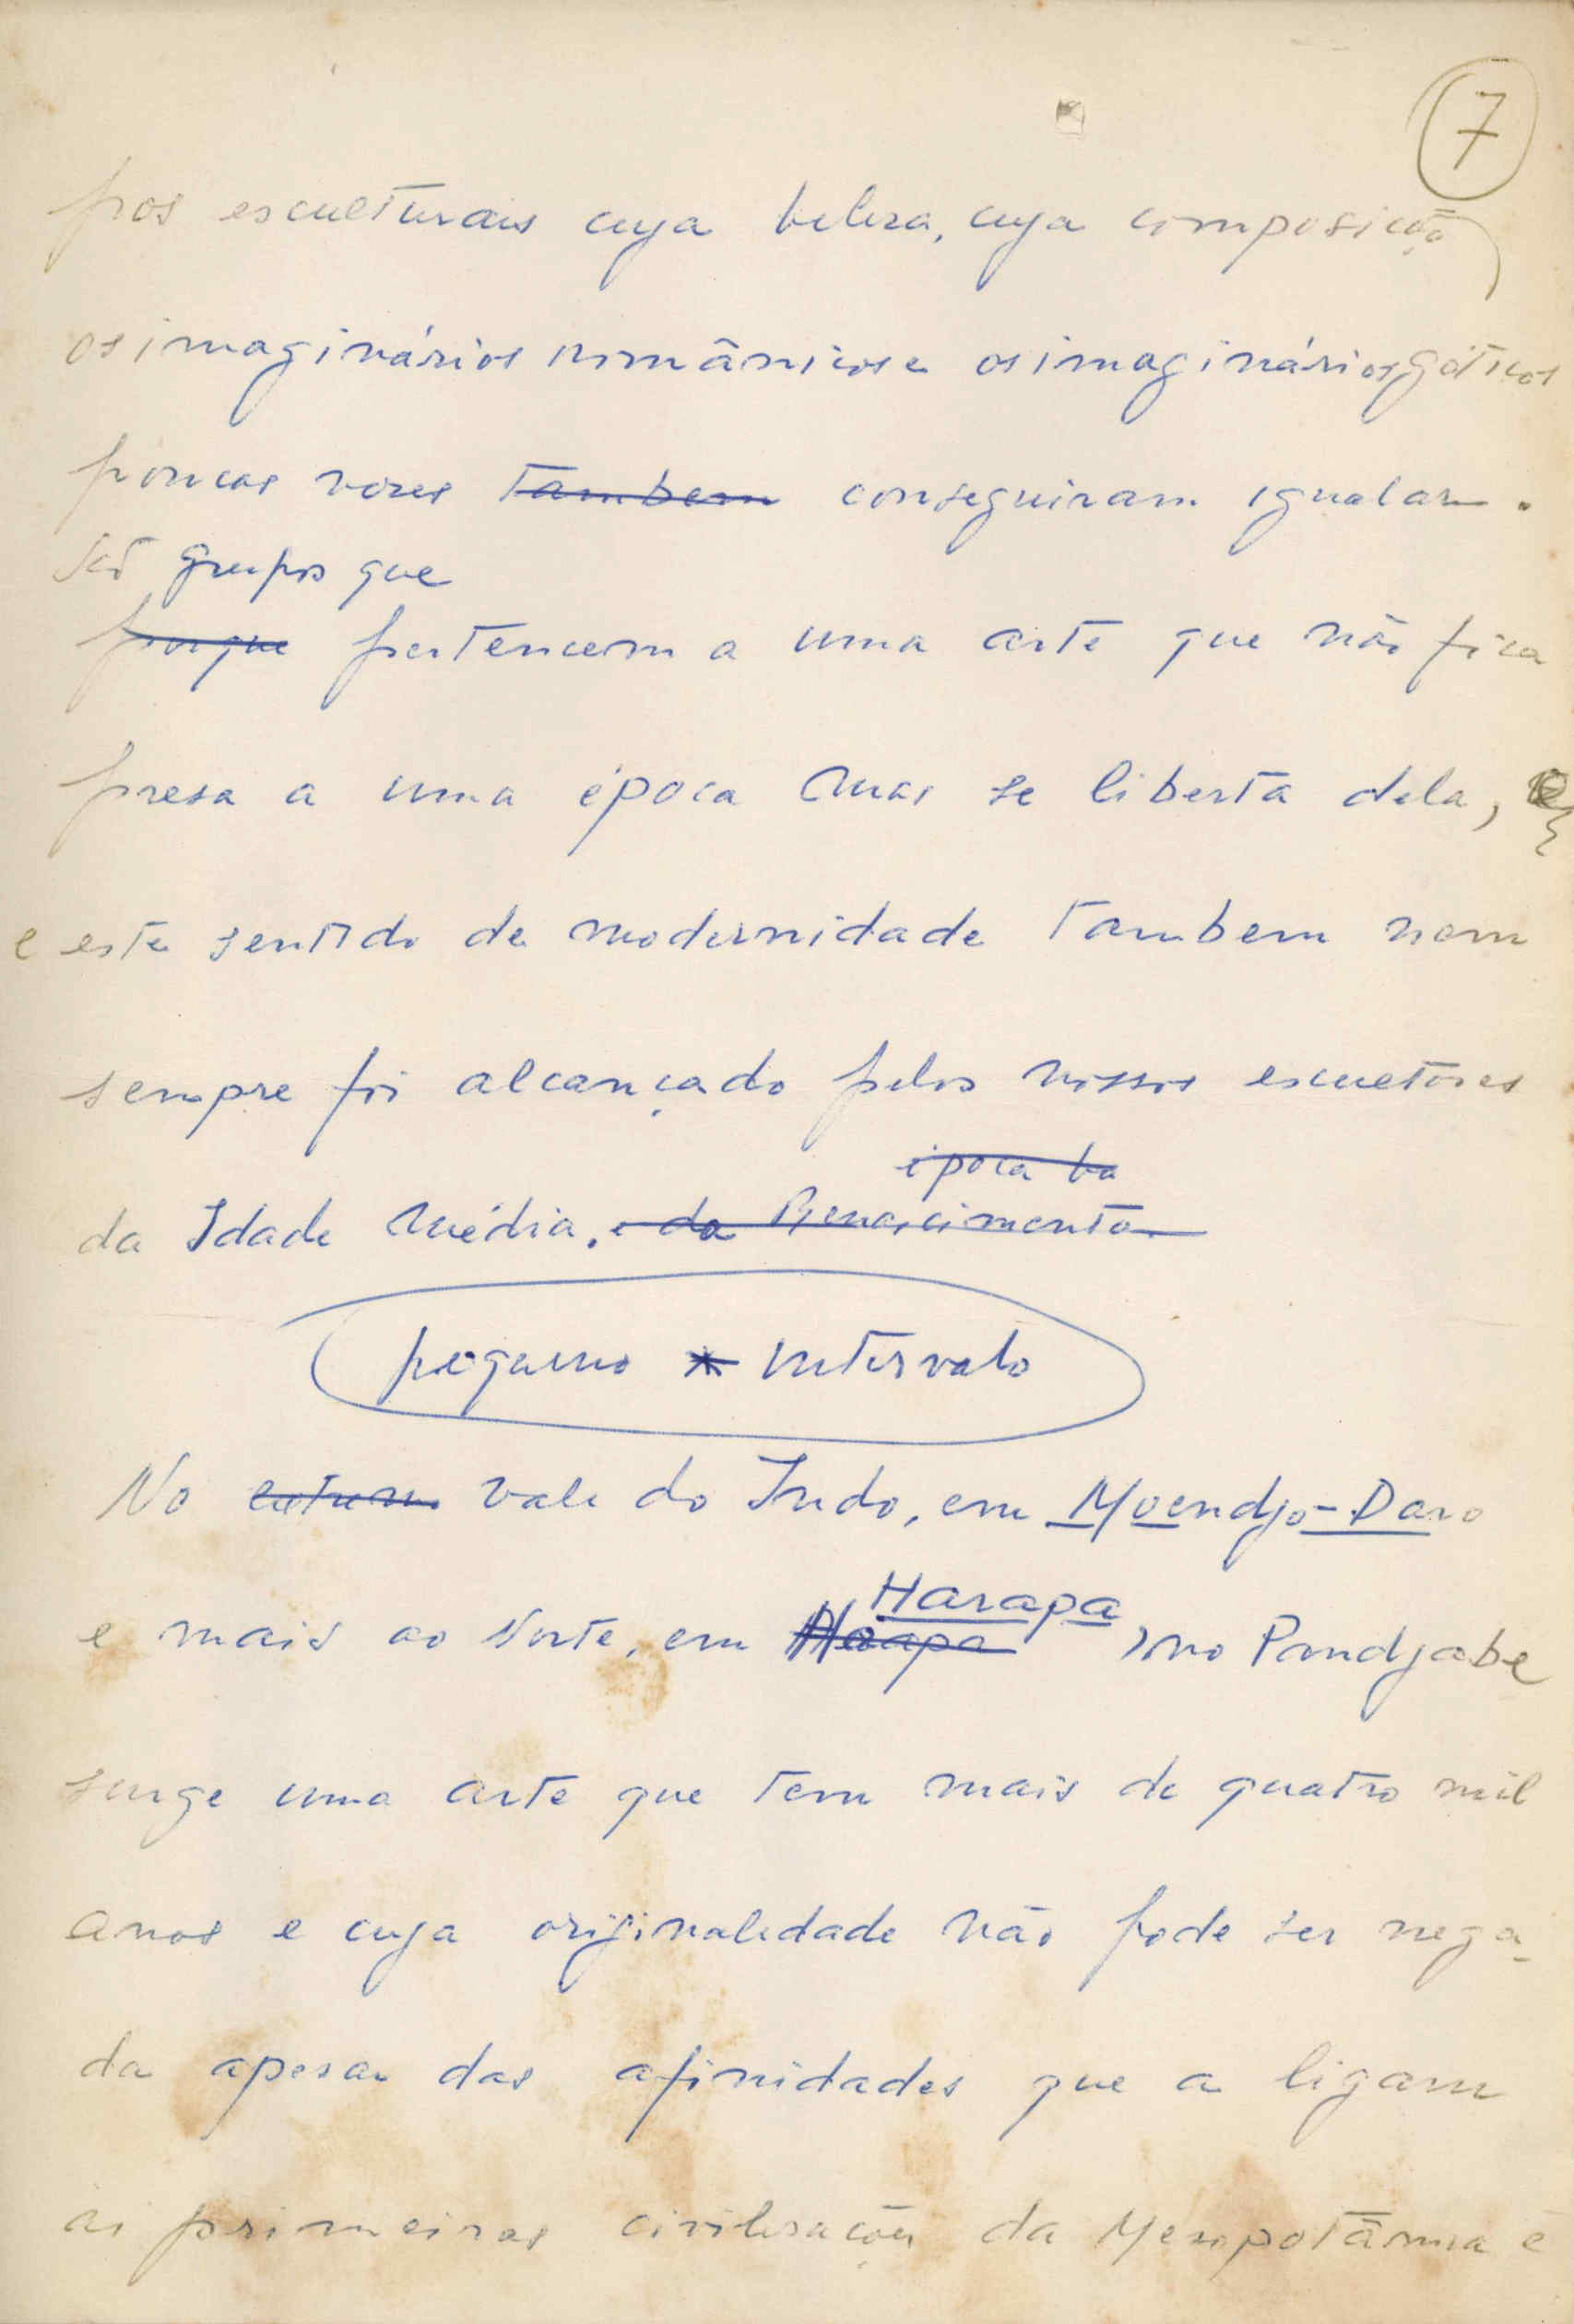 7
pos esculturais cuja beleza, cuja composição
os imaginários românicos e os imaginários góticos
poucas vezes tambem conseguiram igualar.
São grupos que
porque pertencem a uma arte que não fica
presa a uma época mas se liberta dela,
e este sentido de modernidade tambem nem
sempre foi alcançado pelos nossos escultores
época ba
da Idade Média. e da Renascimento
pequeno intervalo
No vale do Indo, em Moendjo-Daro
Harapa
e mais ao Norte, em Harapa, no Pandjabe
surge uma arte que tem mais de quatro mil
anos e cuja originalidade não pode ser nega-
da apesar das afinidades que a ligam
ás primeiras civilisações da Mesopotâmia e